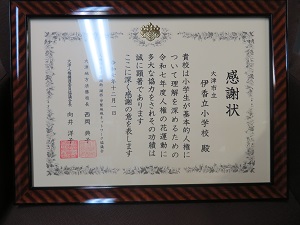 感謝状
大津市立
伊香立小学校 殿
貴校は小学生が基本的人権に
ついて理解を深めるための
令和七年度人権の花運動に
多大な協力をされその功績は
誠に顕著であります
ここに深く感謝の意を表します
十二月一日